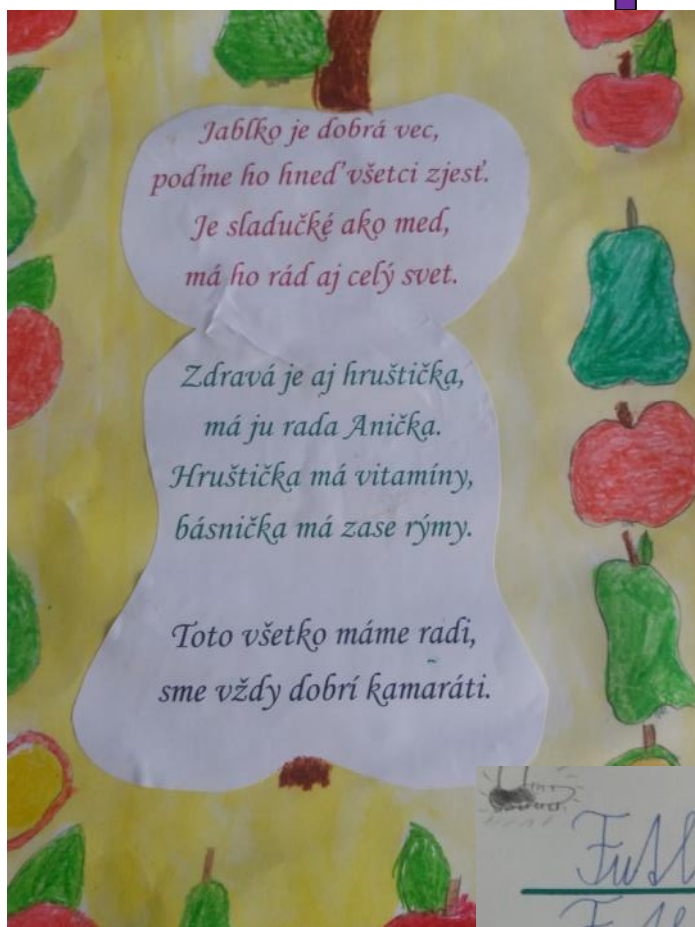 Jablko je dobrá vec,
poďme ho hneď všetci zjesť.
Je sladučké ako med,
má ho rád aj celý svet.
Zdravá je aj hruštička,
má ju rada Anička.
Hruštička má vitamíny,
básnička má zase rýmy.
Toto všetko máme radi,
sme vždy dobrí kamaráti.